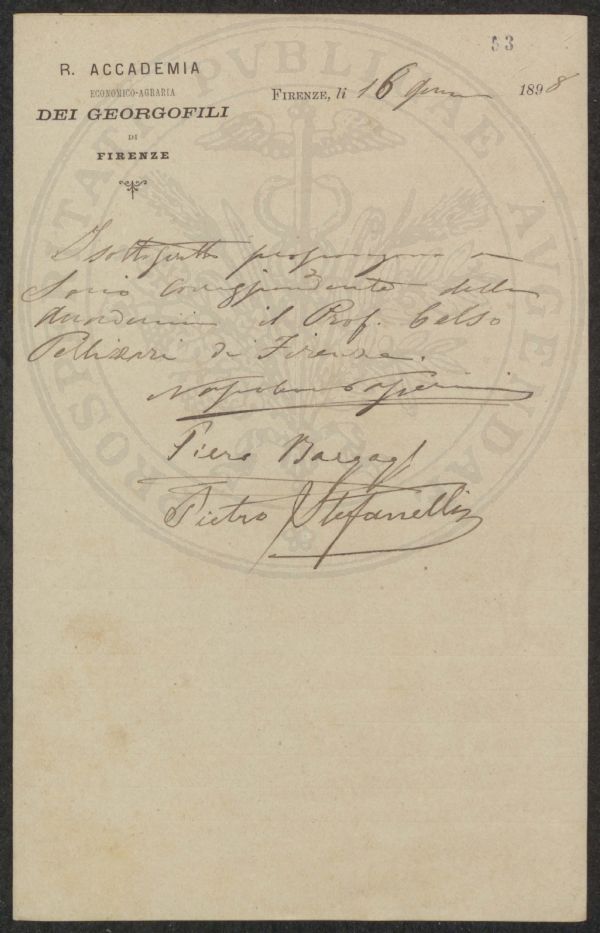 53
R. ACCADEMIA
ECONOMICO-AGRARIA
DEI GEORGOFILI
DI
FIRENZE
FIRENZE, li 16 1898
PROSPERITATI PVBLICAE AVGENDAE
I sottoscritti propongono a
Socio Corrispondente della
Accademia il Prof. Celso
Pellizzari di Firenze.
Napoleone Passerini
Piero Bargagli
Pietro Stefanelli